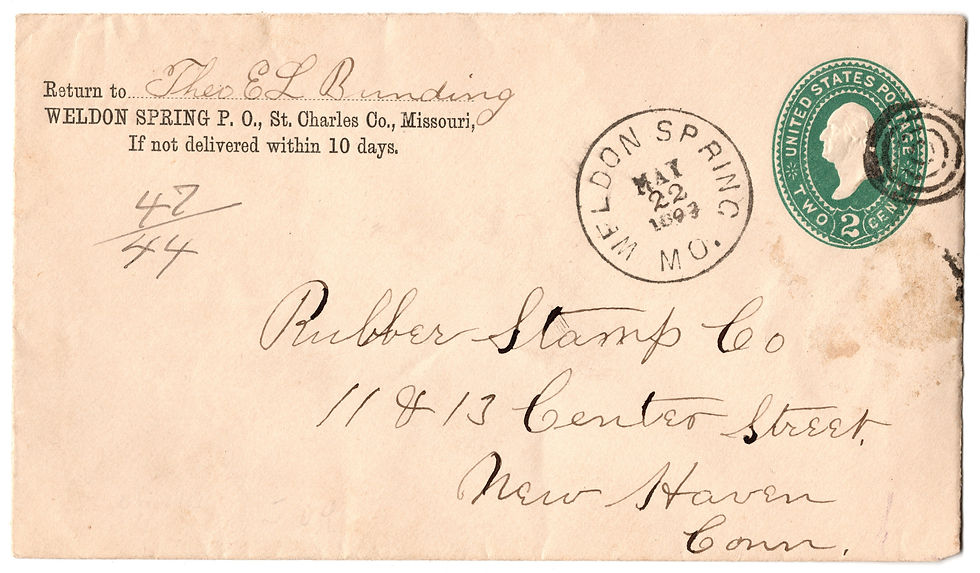 Return to Theo E L Bunding
WELDON SPRING P. O., St. Charles Co., Missouri,
If not delivered within 10 days.
47
44
WELDON SPRING
MAY
22
1893
MO.
UNITED STATES POSTAGE
TWO 2 CENTS
Rubber Stamp Co
11 & 13 Center Street.
New Haven
Conn.